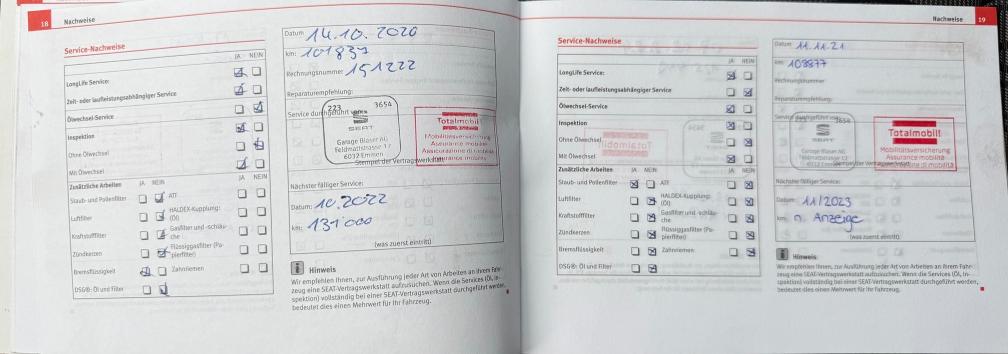 18 Nachweise
Service-Nachweise
JA NEIN
LongLife Service:
Zeit- oder laufleistungsabhängiger Service
Ölwechsel-Service
Inspektion
Ohne Ölwechsel
Mit Ölwechsel
Zusätzliche Arbeiten JA NEIN JA NEIN
Staub- und Pollenfilter ATF
Luftfilter HALDEX-Kupplung: (Öl)
Kraftstofffilter Gasfilter und -schläuche
Zündkerzen Flüssiggasfilter (Papierfilter)
Bremsflüssigkeit Zahnriemen
DSG®: Öl und Filter
Datum 14.10.2020
km: 101837
Rechnungsnummer 151222
Reparaturempfehlung:
Service durchgeführt
223 3654
SEAT
Garage Blaser AG
Feldmattstrasse 12
6032 Emmen
Stempel der Vertragswerkstatt
Totalmobil!
Mobilitätsversicherung
Assurance mobilité
Assicurazione di mobilità
Nächster fälliger Service:
Datum: 10.2022
km: 131000
(was zuerst eintritt)
Hinweis
Wir empfehlen Ihnen, zur Ausführung jeder Art von Arbeiten an Ihrem Fahr-
zeug eine SEAT-Vertragswerkstatt aufzusuchen. Wenn die Services (Öl, In-
spektion) vollständig bei einer SEAT-Vertragswerkstatt durchgeführt werden,
bedeutet dies einen Mehrwert für Ihr Fahrzeug.
Nachweise 19
Service-Nachweise
JA NEIN
LongLife Service:
Zeit- oder laufleistungsabhängiger Service
Ölwechsel-Service
Inspektion
Ohne Ölwechsel
Mit Ölwechsel
Zusätzliche Arbeiten JA NEIN JA NEIN
Staub- und Pollenfilter ATF
Luftfilter HALDEX-Kupplung: (Öl)
Kraftstofffilter Gasfilter und -schläuche
Zündkerzen Flüssiggasfilter (Papierfilter)
Bremsflüssigkeit Zahnriemen
DSG®: Öl und Filter
Datum: 11.11.21
km: 108877
Rechnungsnummer
Reparaturempfehlung:
Service durchgeführt
3654
SEAT
Garage Blaser AG
Feldmattstrasse 12
6032 Emmen
Stempel der Vertragswerkstatt
Totalmobil!
Mobilitätsversicherung
Assurance mobilité
Assicurazione di mobilità
Nächster fälliger Service:
Datum: 11/2023
km: n. Anzeige
(was zuerst eintritt)
Hinweis
Wir empfehlen Ihnen, zur Ausführung jeder Art von Arbeiten an Ihrem Fahr-
zeug eine SEAT-Vertragswerkstatt aufzusuchen. Wenn die Services (Öl, In-
spektion) vollständig bei einer SEAT-Vertragswerkstatt durchgeführt werden,
bedeutet dies einen Mehrwert für Ihr Fahrzeug.